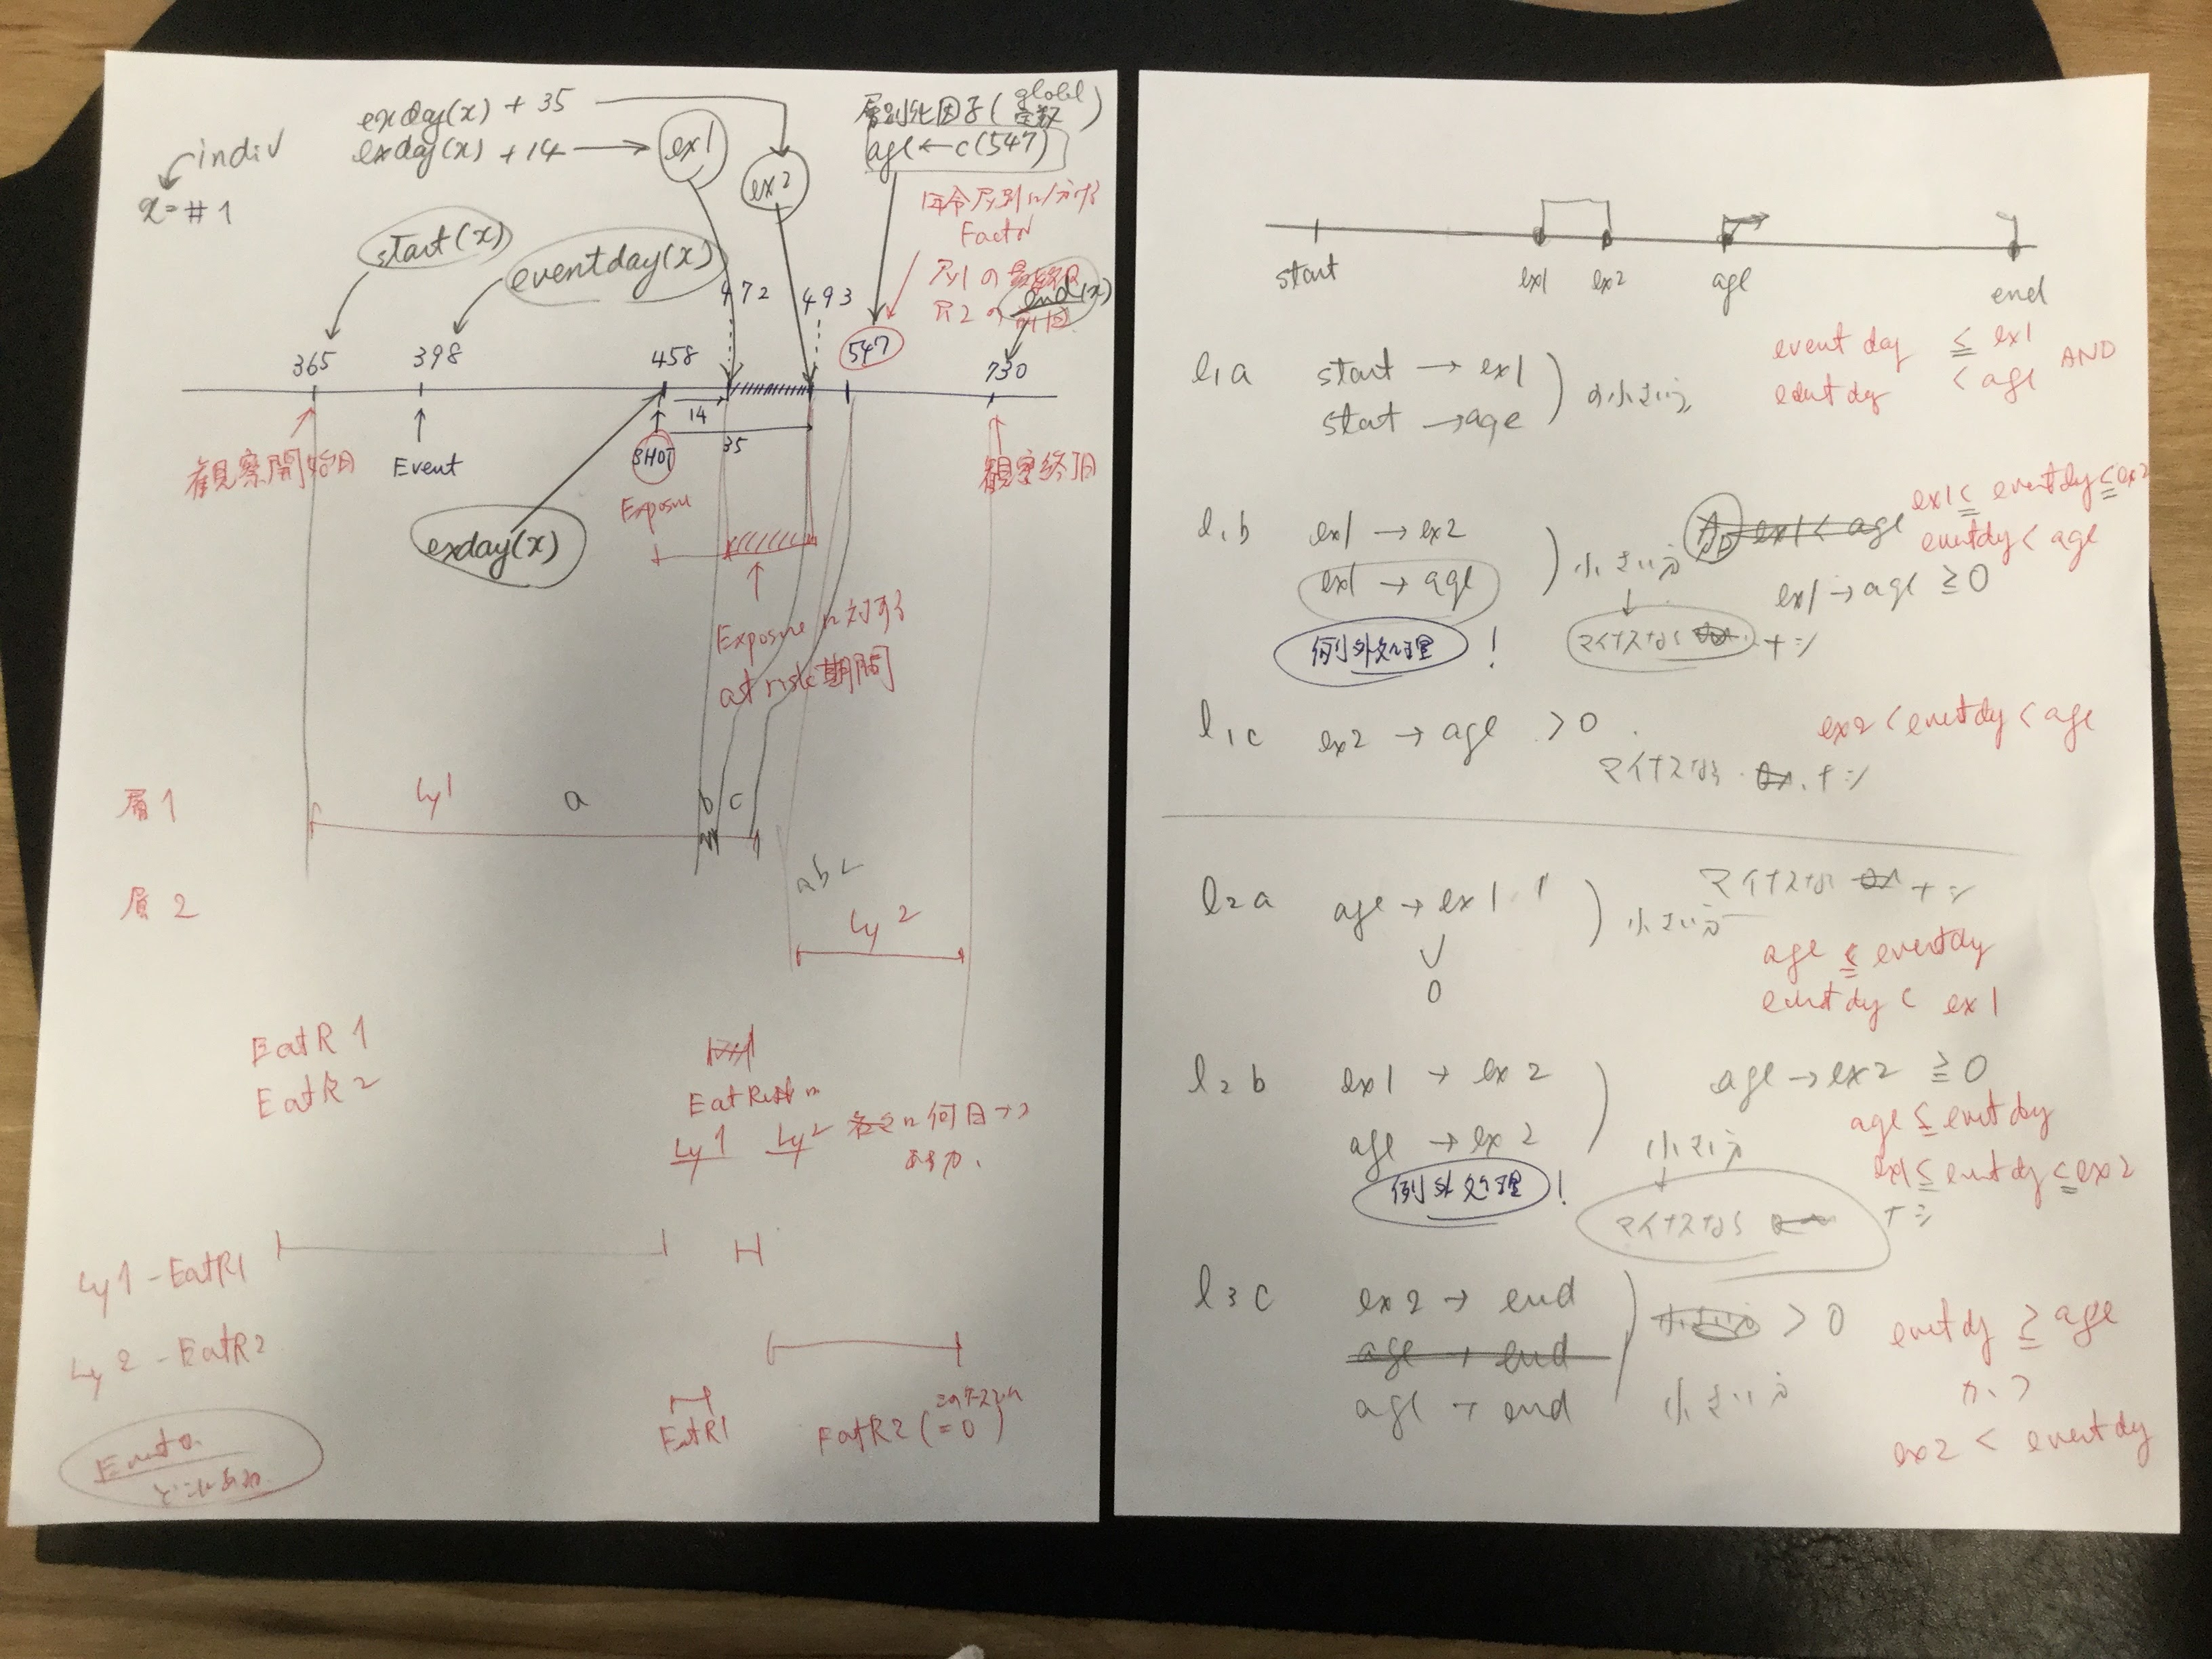 exday(x) + 35
exday(x) + 14 → ex1
ex2
層別化因子(global 定数)
age ← c(547)
indiv
x = #1
年令層別に分ける
Factor
層1の最終日
層2の
start(x)
eventday(x)
end(x)
472
493
365
398
458
547
730
14
35
観察開始日
Event
SHOT
Exposure
観察終了日
exday(x)
Exposureに対する
at risk期間
層1
Ly1
a
b
c
abc
層2
Ly2
EatR1
EatR2
EatRisk
Ly1 Ly2 各々に何日ずつ
あるか、
Ly1 - EatR1
Ly2 - EatR2
EatR1
EatR2 (=0)
Eventは
どこにあるか
start
ex1
ex2
age
end
l1a start → ex1
start → age
の小さい方
eventday ≦ ex1
AND
eventday < age
l1b ex1 → ex2
ex1 → age
小さい方
AND ex1 < age
ex1 ≦ eventdy ≦ ex2
eventdy < age
ex1 → age ≧ 0
例外処理!
マイナスなら ナシ
l1c ex2 → age > 0
マイナスなら ナシ
ex2 < eventdy < age
l2a age → ex1
∨
0
小さい方
マイナスなら ナシ
age ≦ eventdy
eventdy < ex1
l2b ex1 → ex2
age → ex2
小さい方
age → ex2 ≧ 0
age ≦ eventdy
ex1 ≦ eventdy ≦ ex2
例外処理!
マイナスなら ナシ
l3c ex2 → end
age → end
age → end
小さい方 > 0
小さい方
eventdy ≧ age
かつ
ex2 < eventdy